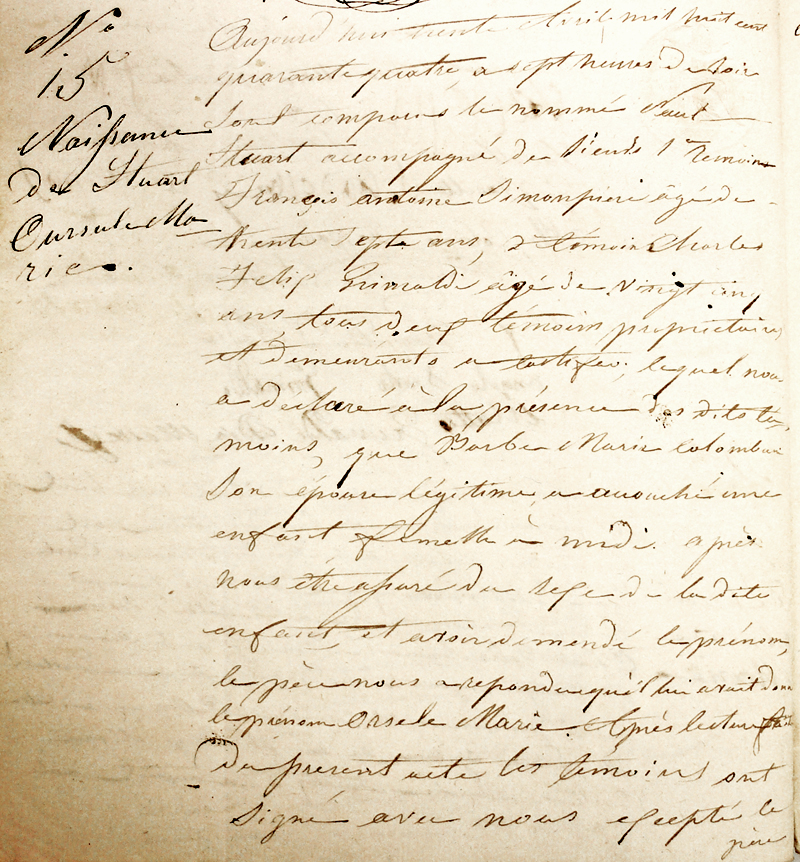 N°
15
Naissance
de Stuart
Oursule Ma
rie.
Aujourd'hui trente Avril mil huit cent
quarante quatre, a sept heures de soir
sont comparus le nommé Paul
Stuart accompagné de Sieurs 1er Temoins
François antoine Simonpieri âgé de
trente septe ans, 2 témoin Charles
Felip Grimaldi âgé de vingt cinq
ans, tous deux témoins proprietaires
et demeurants a ; lequel nous
a déclaré à la présence des dits té
moins, que Barbe Marie Colomban
son épouse légitime, a accouché une
enfant femelle à midi. après
nous être assuré du sexe de la dite
enfant, et avoir demandé le prénom,
le père nous a repondu qu'il lui avait donné
le prénom Orsele Marie. Après lecture faite
du present acte les témoins ont
signé avec nous excepté le
père